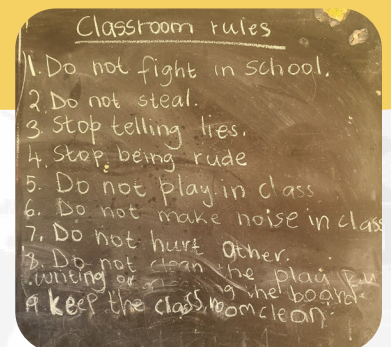 Classroom rules
1. Do not fight in school.
2. Do not steal.
3. Stop telling lies.
4. Stop being rude
5. Do not play in class
6. Do not make noise in class
7. Do not hurt other.
8. Do not clean the
writing or the board.
9. keep the classroom clean.